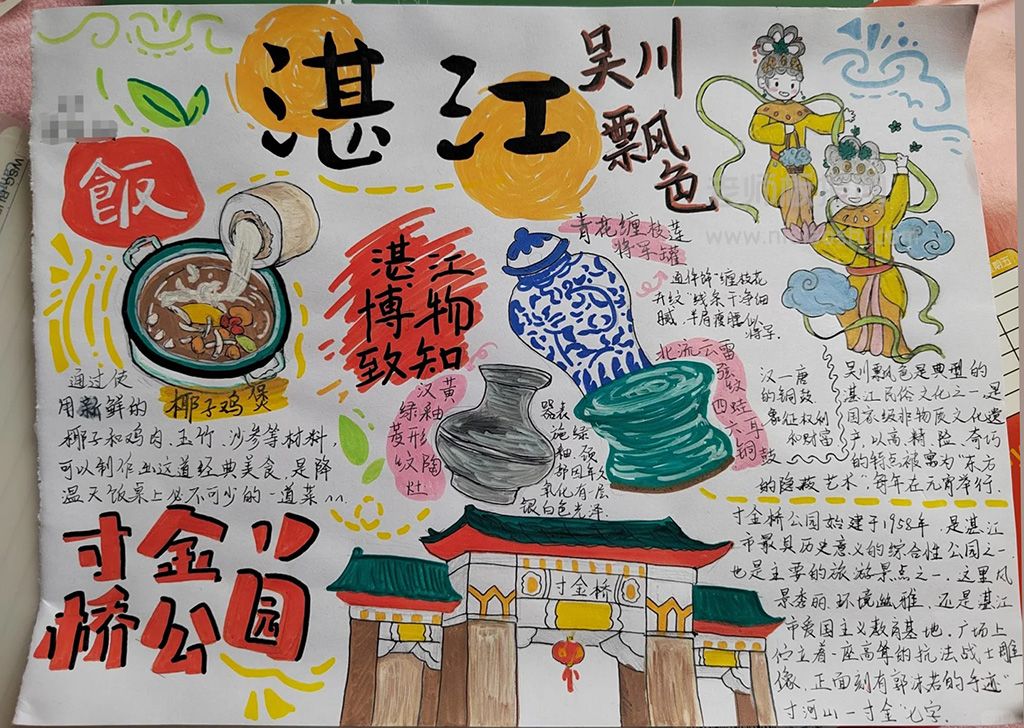 湛江
吴川
飘色
飯
湛江
博物
致知
青花缠枝莲
将军罐
通体饰"缠枝花
卉纹"线条干净细
腻,丰肩瘦腰似
将军.
北流云雷
弦纹
四蛙耳
铜鼓
汉—唐
的铜鼓
象征权利
和财富
汉黄
绿釉
菱形
纹陶
灶
器表
施绿
釉,颈
部因年久
氧化有一层
银白色光泽.
通过使
用新鲜的
椰子鸡煲
椰子和鸡肉、玉竹、沙参等材料,
可以制作出这道经典美食,是降
温天饭桌上必不可少的一道菜
吴川飘色是典型的
湛江民俗文化之一,是
国家级非物质文化遗
产,以高、精、险、奇巧
的特点被寓为"东方
的隐蔽艺术"每年在元宵举行.
寸金
桥公园
寸金桥
寸金桥公园始建于1958年,是湛江
市最具历史意义的综合性公园之一
也是主要的旅游景点之一.这里风
景秀丽,环境幽雅,还是湛江
市爱国主义教育基地.广场上
伫立着一座高耸的抗法战士雕
像,正面刻有郭沫若的手迹"
寸河山一寸金"七字